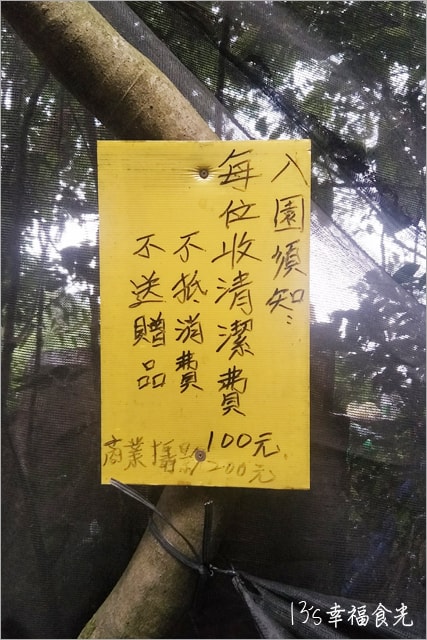 入園須知：
每位收清潔費
100元
不抵消費
不送贈品
商業攝影1200元
13's幸福食光